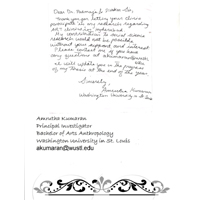 Dear Dr.
Thank you for letting your clinic
participate in my research regarding
My
research would not be possible
without your support and interest.
Please contact me if you have
any questions at
I will update you on the progress
of my thesis at the end of the year.
Sincerely,
Amrutha Kumaran
Washington University in St. Louis
Amrutha Kumaran
Principal Investigator
Bachelor of Arts Anthropology
Washington University in St. Louis
akumaran@wustl.edu